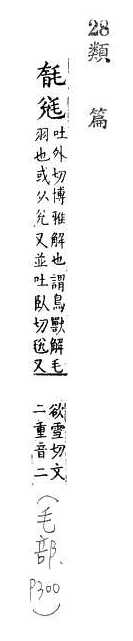 28
類篇
毻毤
吐外切博雅解也謂鳥獸解毛
羽也或从兌又並吐臥切毻又
欲雪切文
二重音二
(毛部.
P300)